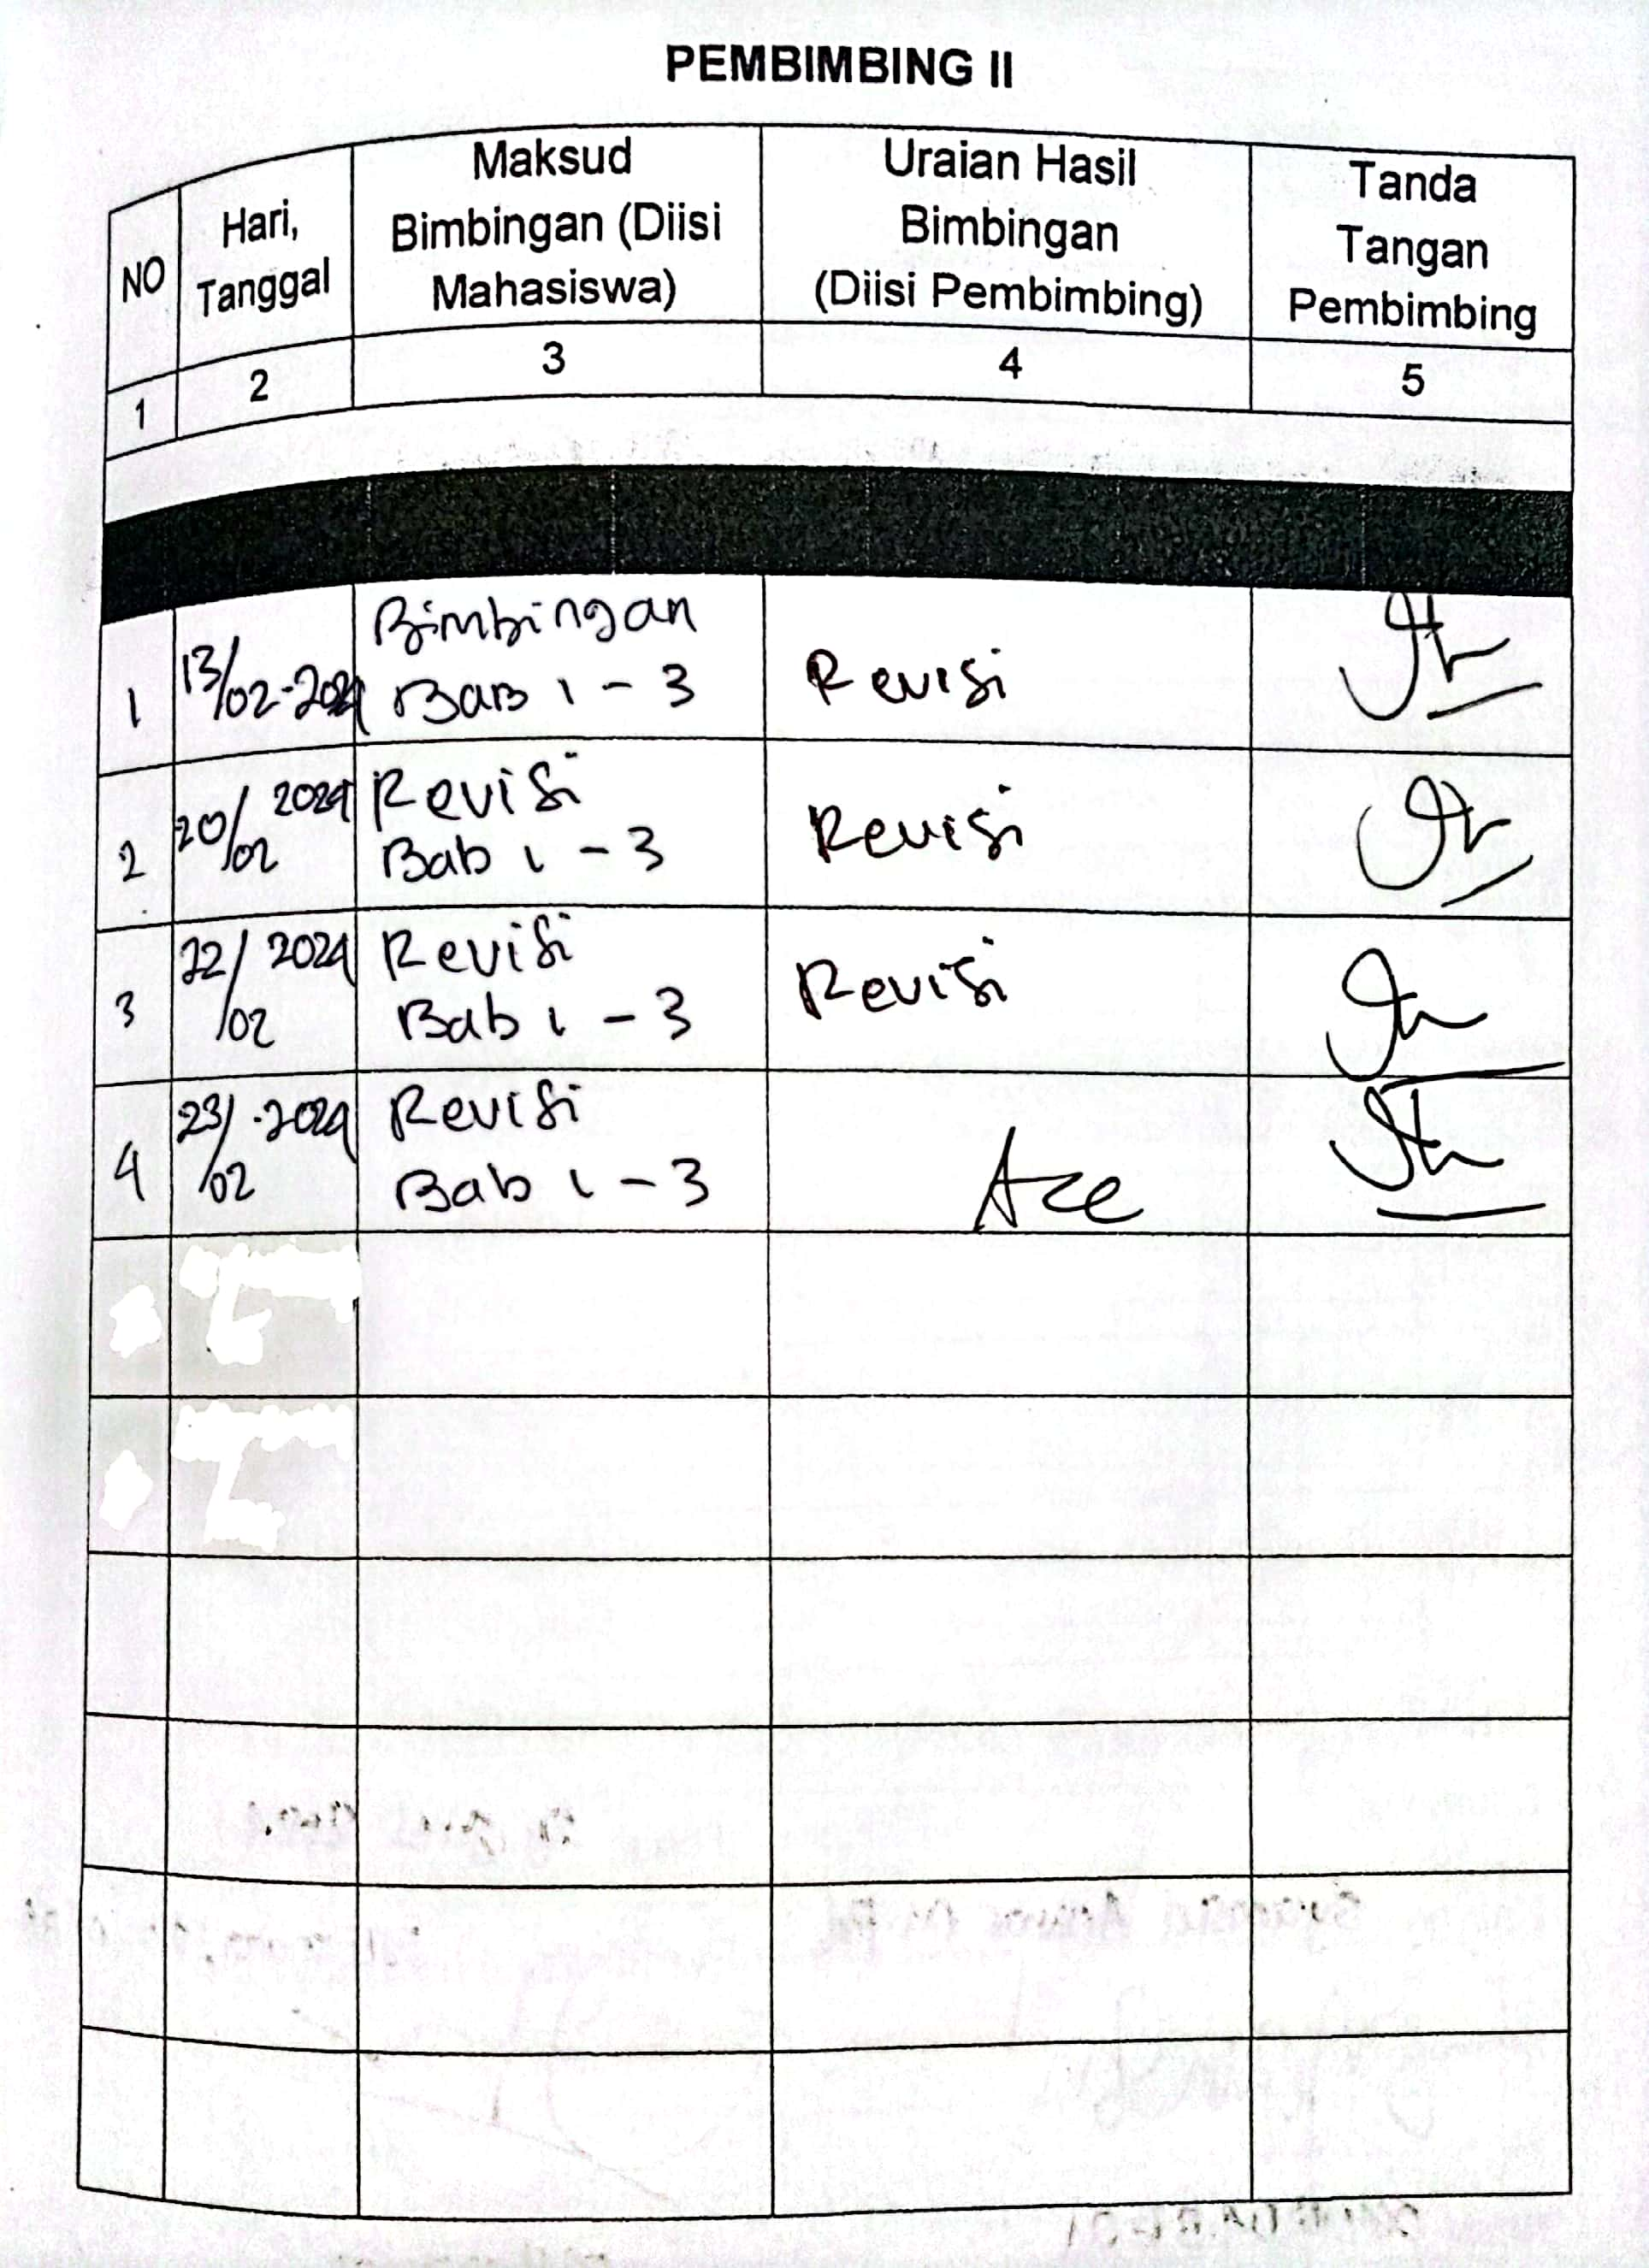 PEMBIMBING II
NO
Hari,
Tanggal
Maksud
Bimbingan (Diisi
Mahasiswa)
Uraian Hasil
Bimbingan
(Diisi Pembimbing)
Tanda
Tangan
Pembimbing
1
2
3
4
5
1
13/02-2024
Bimbingan
Bab 1 - 3
Revisi
2
20/02 2024
Revisi
Bab 1 - 3
Revisi
3
22/02 2024
Revisi
Bab 1 - 3
Revisi
4
23/02-2024
Revisi
Bab 1 - 3
Acc